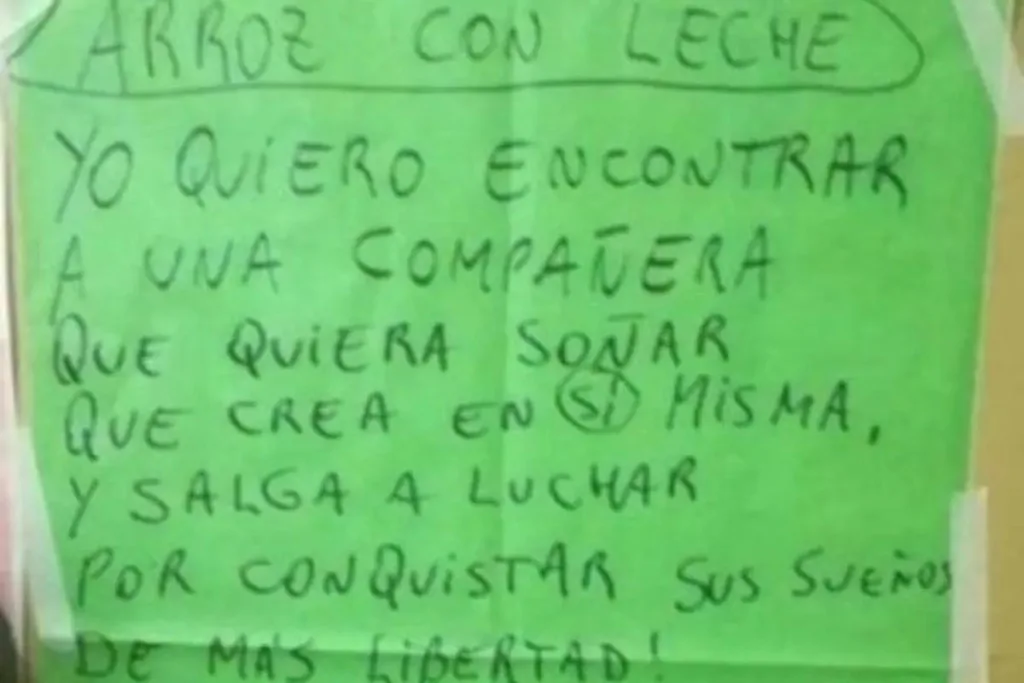 ARROZ CON LECHE
YO QUiERO ENCONTRAR
A UNA COMPAÑERA
QUE QUiERA SOÑAR
QUE CREA EN Sí MiSMA,
Y SALGA A LUCHAR
POR CONQUiSTAR SUS SUEÑOS
DE MÁS LiBERTAD!